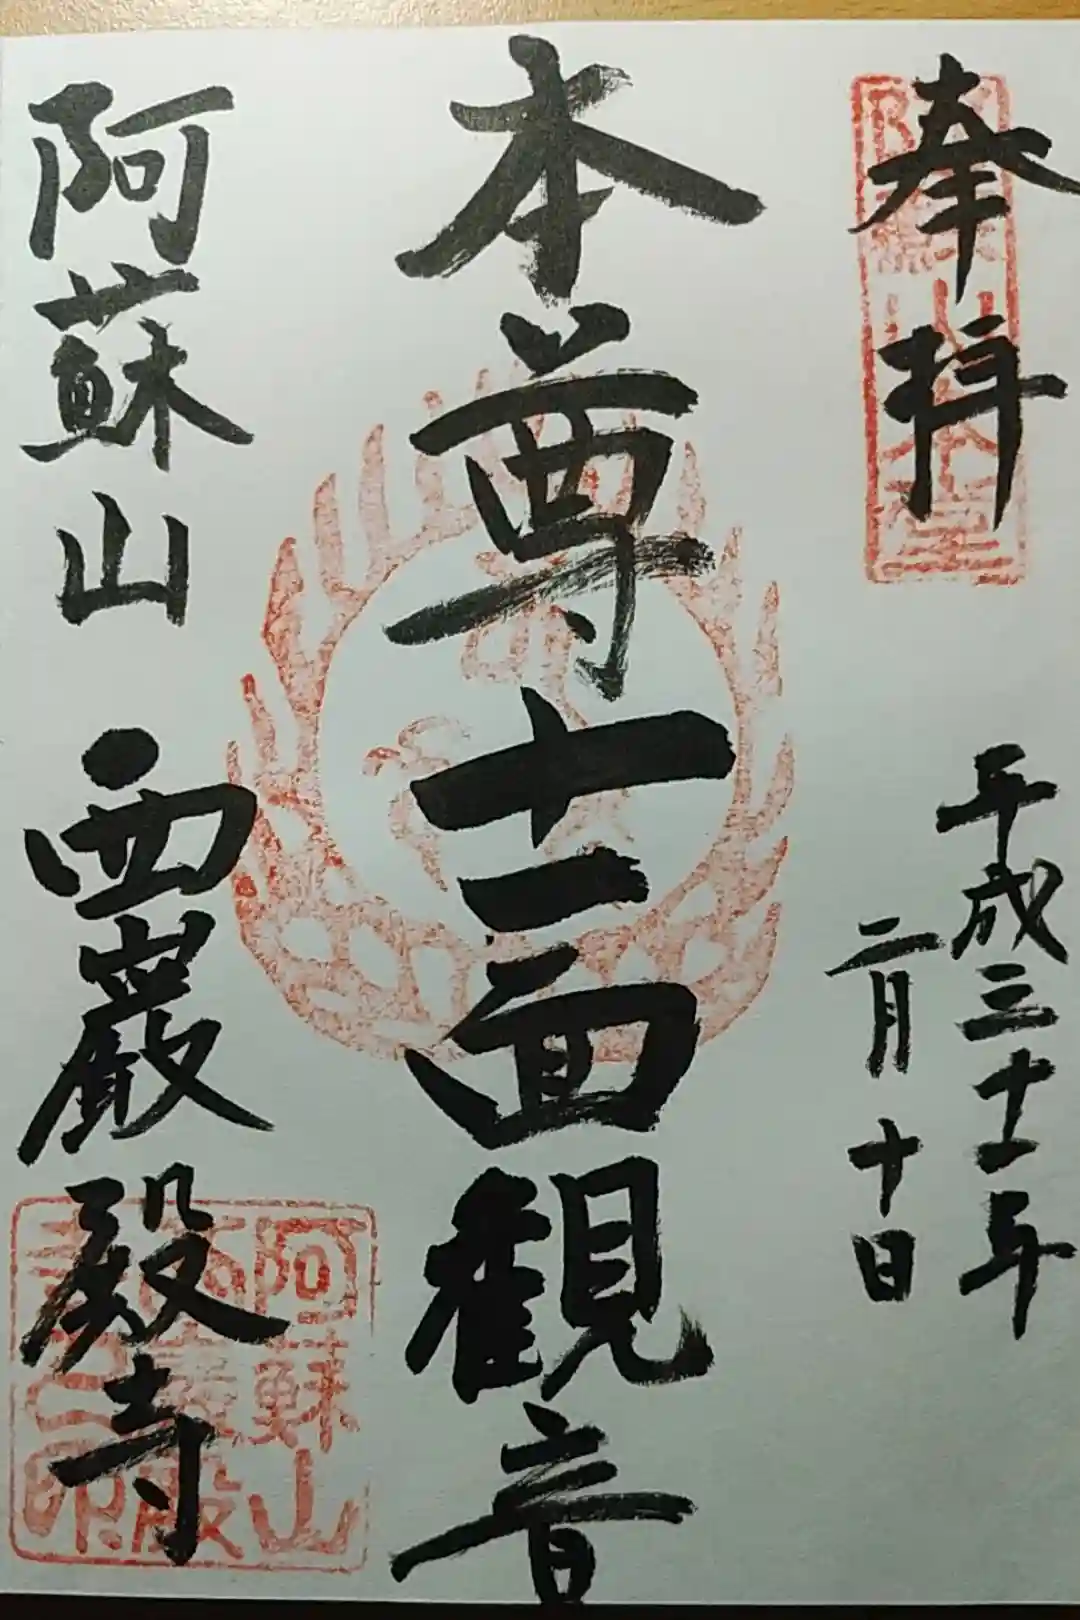 奉拝
平成三十一年
二月十日
本尊十一面観音
阿蘇山
西巖殿寺
阿蘇山
西巖殿
寺之印